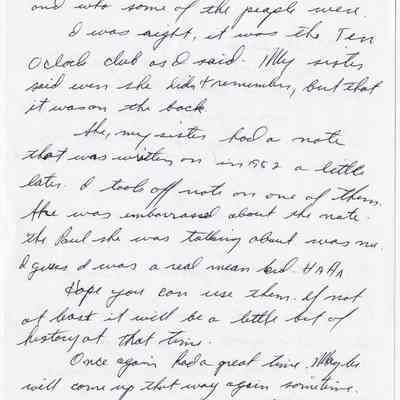 and who some of the people were.
I was right, it was the Ten
O'clock club as I said. My sister
said won she didn't remember, but that
it was on the back.
She, my sister had a note
that was written on in 1952 a little
later. I took off note on one of them.
She was embarrassed about the note.
The Paul she was talking about was me.
I guess I was a real mean kid. HAHA
Hope you can use them. If not
at least it will be a little bit of
history at that time.
Once again had a great time. Maybe
will come up that way again sometime.